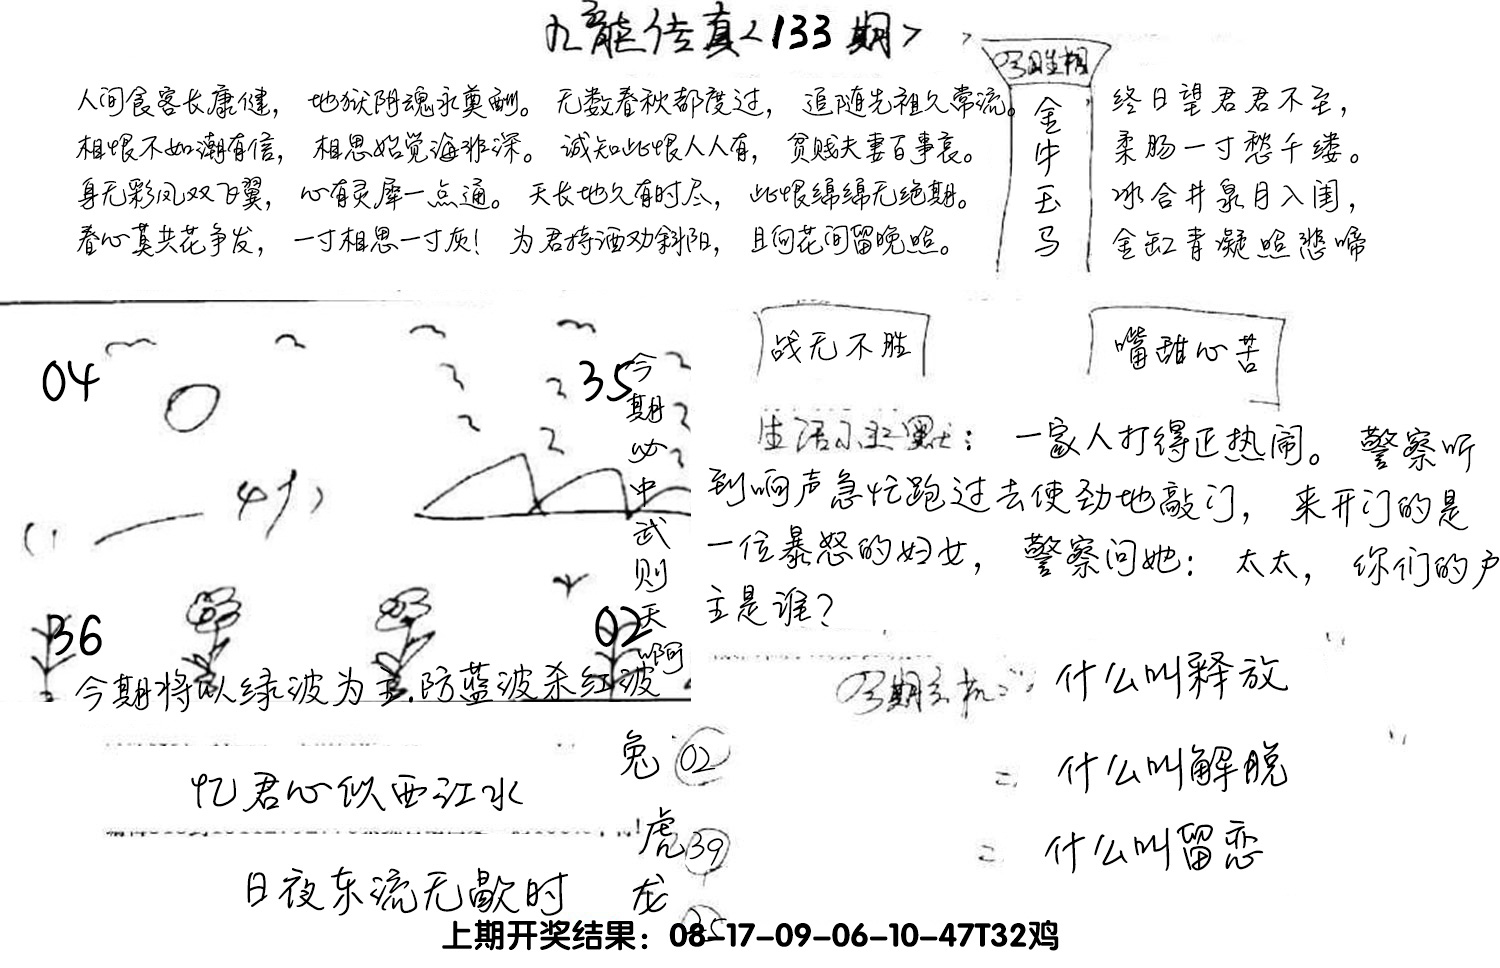 九龙传真<133期>
人间食客长康健，地狱阴魂永奠酬。无数春秋都度过，追随先祖久常流。
相恨不如潮有信，相思始觉海非深。诚知此恨人人有，贫贱夫妻百事哀。
身无彩凤双飞翼，心有灵犀一点通。天长地久有时尽，此恨绵绵无绝期。
春心莫共花争发，一寸相思一寸灰！为君持酒劝斜阳，且向花间留晚照。
金牛玉马
终日望君君不至，
柔肠一寸愁千缕。
冰合井泉月入闺，
金缸青凝照悲啼
04
35
今期必中武则天啊
36
02
今期将以绿波为主.防蓝波杀红波
战无不胜
嘴甜心苦
生活幽默：一家人打得正热闹。警察听
到响声急忙跑过去使劲地敲门，来开门的是
一位暴怒的妇女，警察问她：太太，你们的户
主是谁？
什么叫释放
二 什么叫解脱
二 什么叫留恋
忆君心似西江水
日夜东流无歇时
兔 02
虎 39
龙
上期开奖结果：08-17-09-06-10-47T32鸡